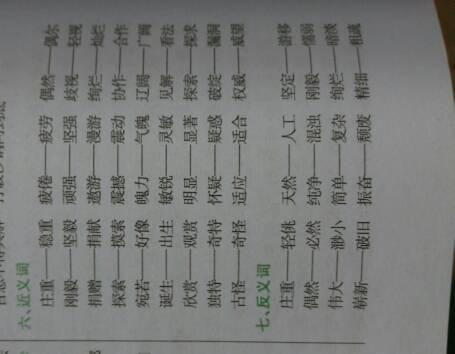 六、近义词
庄重——稳重 疲倦——疲劳 偶然——偶尔
刚毅——坚毅 顽强——坚强 歧视——轻视
捐赠——捐献 遨游——漫游 绚烂——灿烂
探索——摸索 震撼——震动 协作——合作
宛若——好像 魄力——气魄 辽阔——广阔
诞生——出生 敏锐——灵敏 见解——看法
欣赏——观赏 明显——显著 探索——探求
独特——奇特 怀疑——疑惑 破绽——漏洞
古怪——奇怪 适应——适合 权威——威望
七、反义词
庄重——轻佻 天然——人工 坚定——游移
偶然——必然 纯净——混浊 刚毅——懦弱
伟大——渺小 简单——复杂 绚烂——暗淡
崭新——破旧 振奋——颓废 精细——粗疏